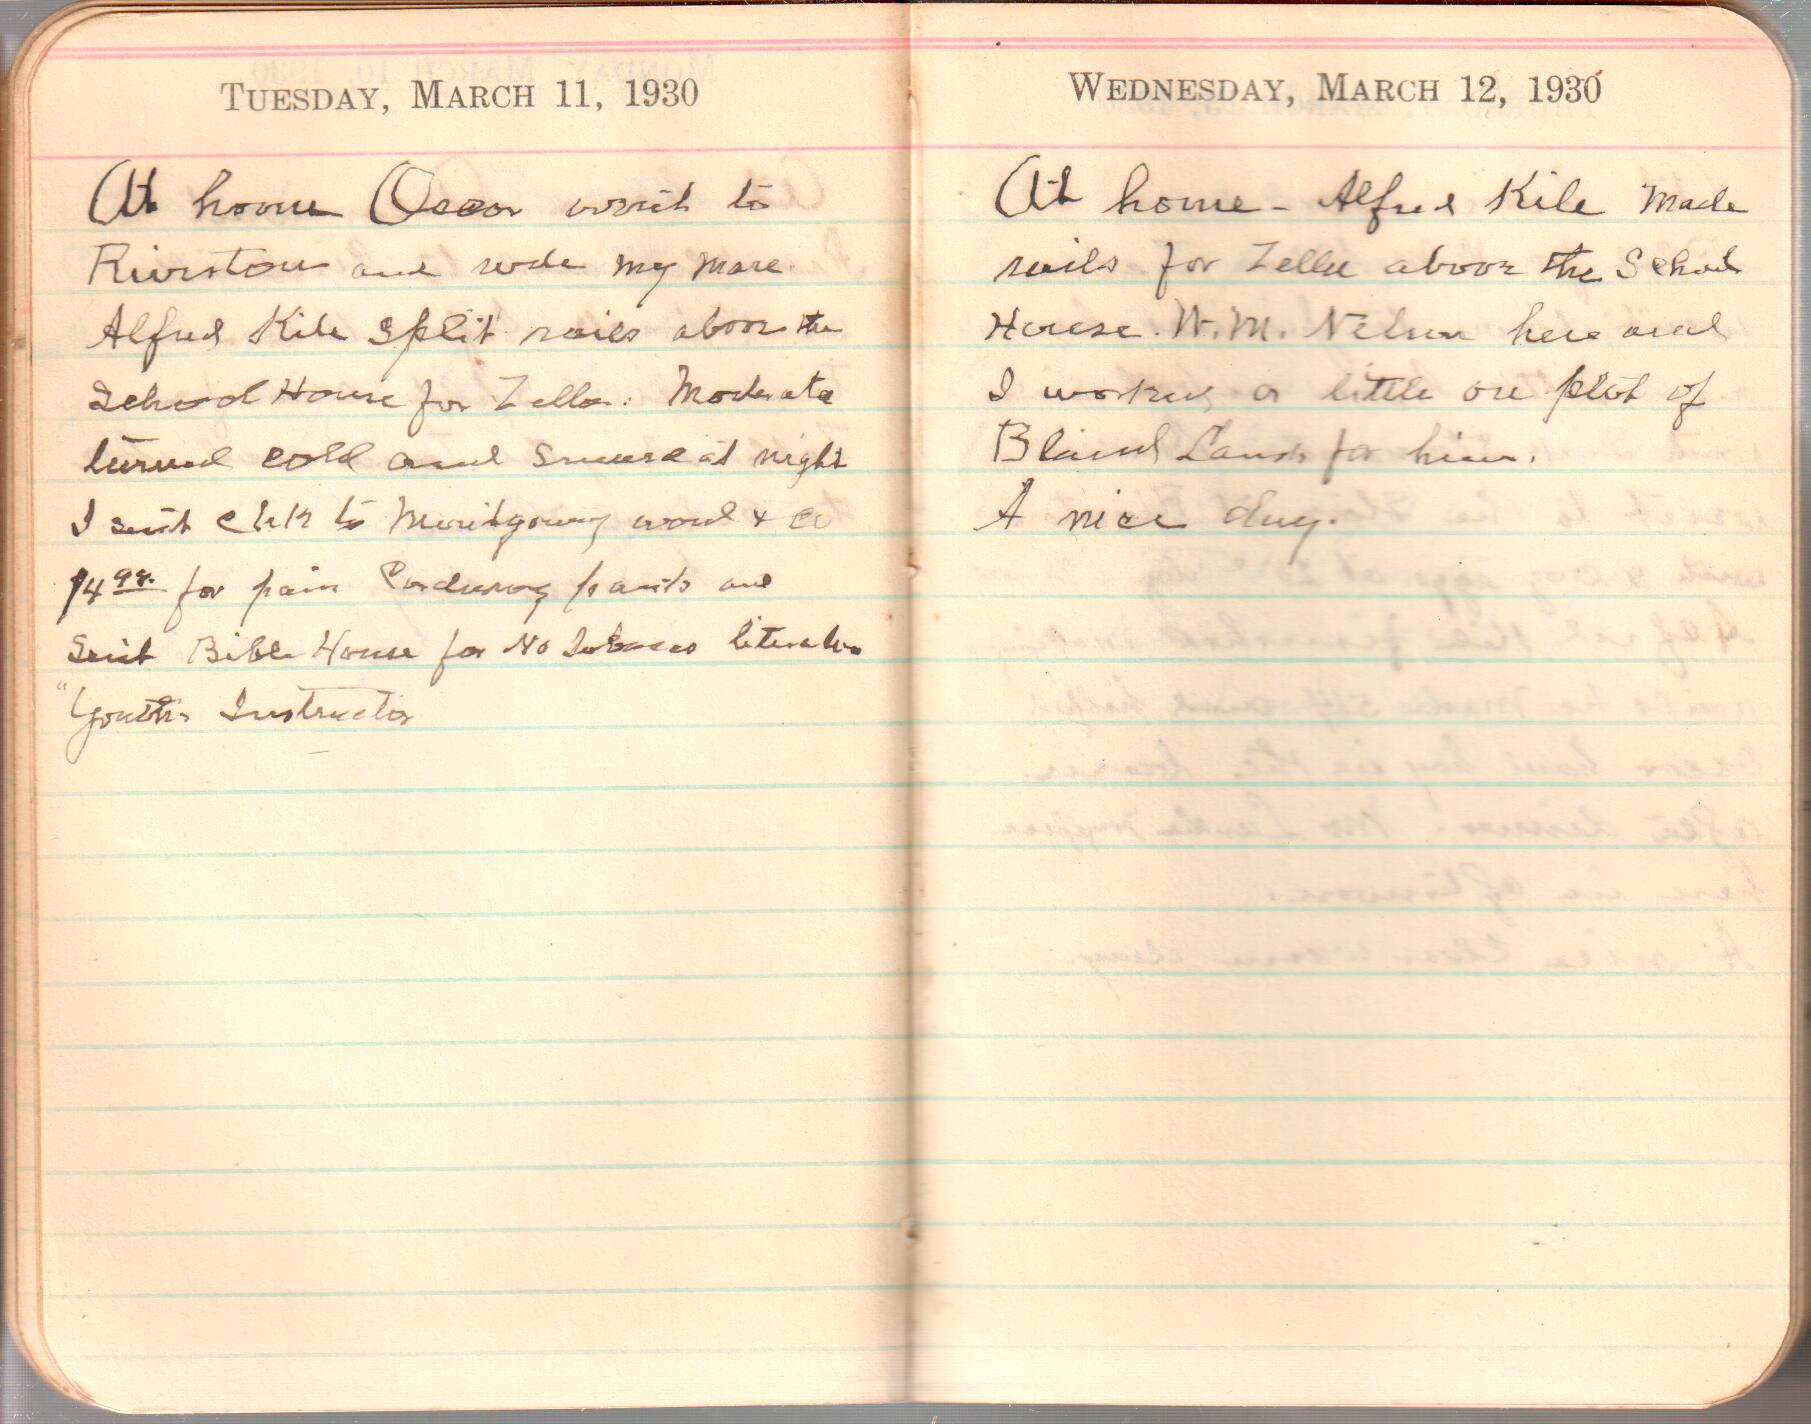 TUESDAY, MARCH 11, 1930
At home Oscar went to
Riverton and rode my mare.
Alfred Kile split rails above the
School House for Zella. Moderate
turned cold and at night
I sent chk to Montgomery ward & Co
$4 98. for pair Corduroy pants and
Sent Bible House for No Tobacco
"Youth's Instructor
WEDNESDAY, MARCH 12, 1930
At home - Alfred Kile made
rails for above the School
House. W. M. Nelson here and
I worked a little on plot of
Bland Lands for him.
A nice day.